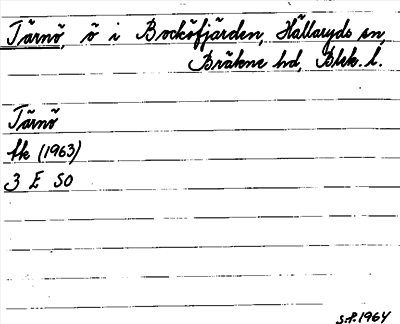 Tärnö, ö i Bocköfjärden, Hällaryds sn,
Bräkne hd, Blek. l.
Tärnö
fk (1963)
3 E SO
S.F. 1964